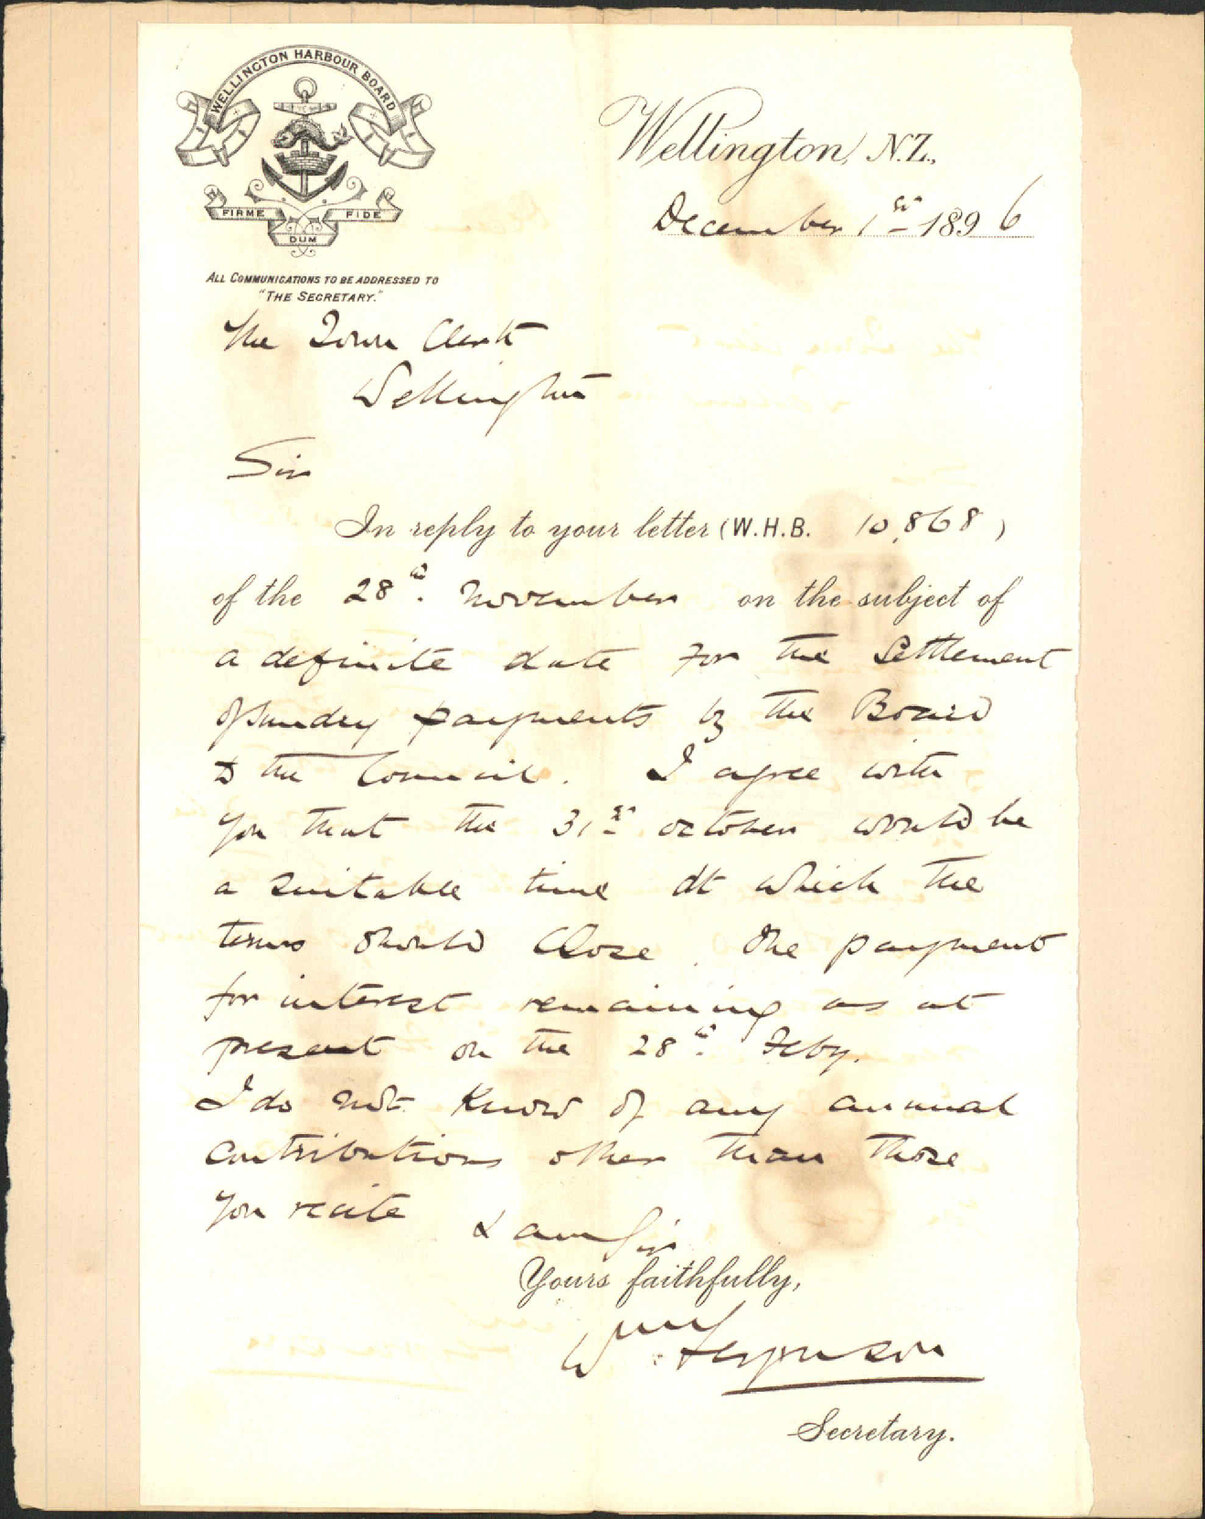 WELLINGTON HARBOUR BOARD
FIRME DUM FIDE
ALL COMMUNICATIONS TO BE ADDRESSED TO
"THE SECRETARY."
Wellington, N.Z.,
December 1st 1896
The Town Clerk
Wellington
Sir
In reply to your letter (W.H.B. 10,868)
of the 28th. November on the subject of
a definite date for the Settlement
of sundry payments by the Board
to the Council. I agree with
you that the 31st October would be
a suitable time at which the
terms should close. The payment
for interest remaining as at
present on the 28th. Feby.
I do not know of any annual
contributions other than those
you recite
I am Sir
Yours faithfully,
Wm Ferguson
Secretary.